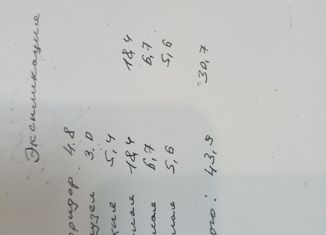 Экспликация
оридор 4.8
узел 3.0
хня 5,4
ная 18,4 18,4
ная 6,7 6,7
ная 5,6 5,6
ого: 43,9 30,7